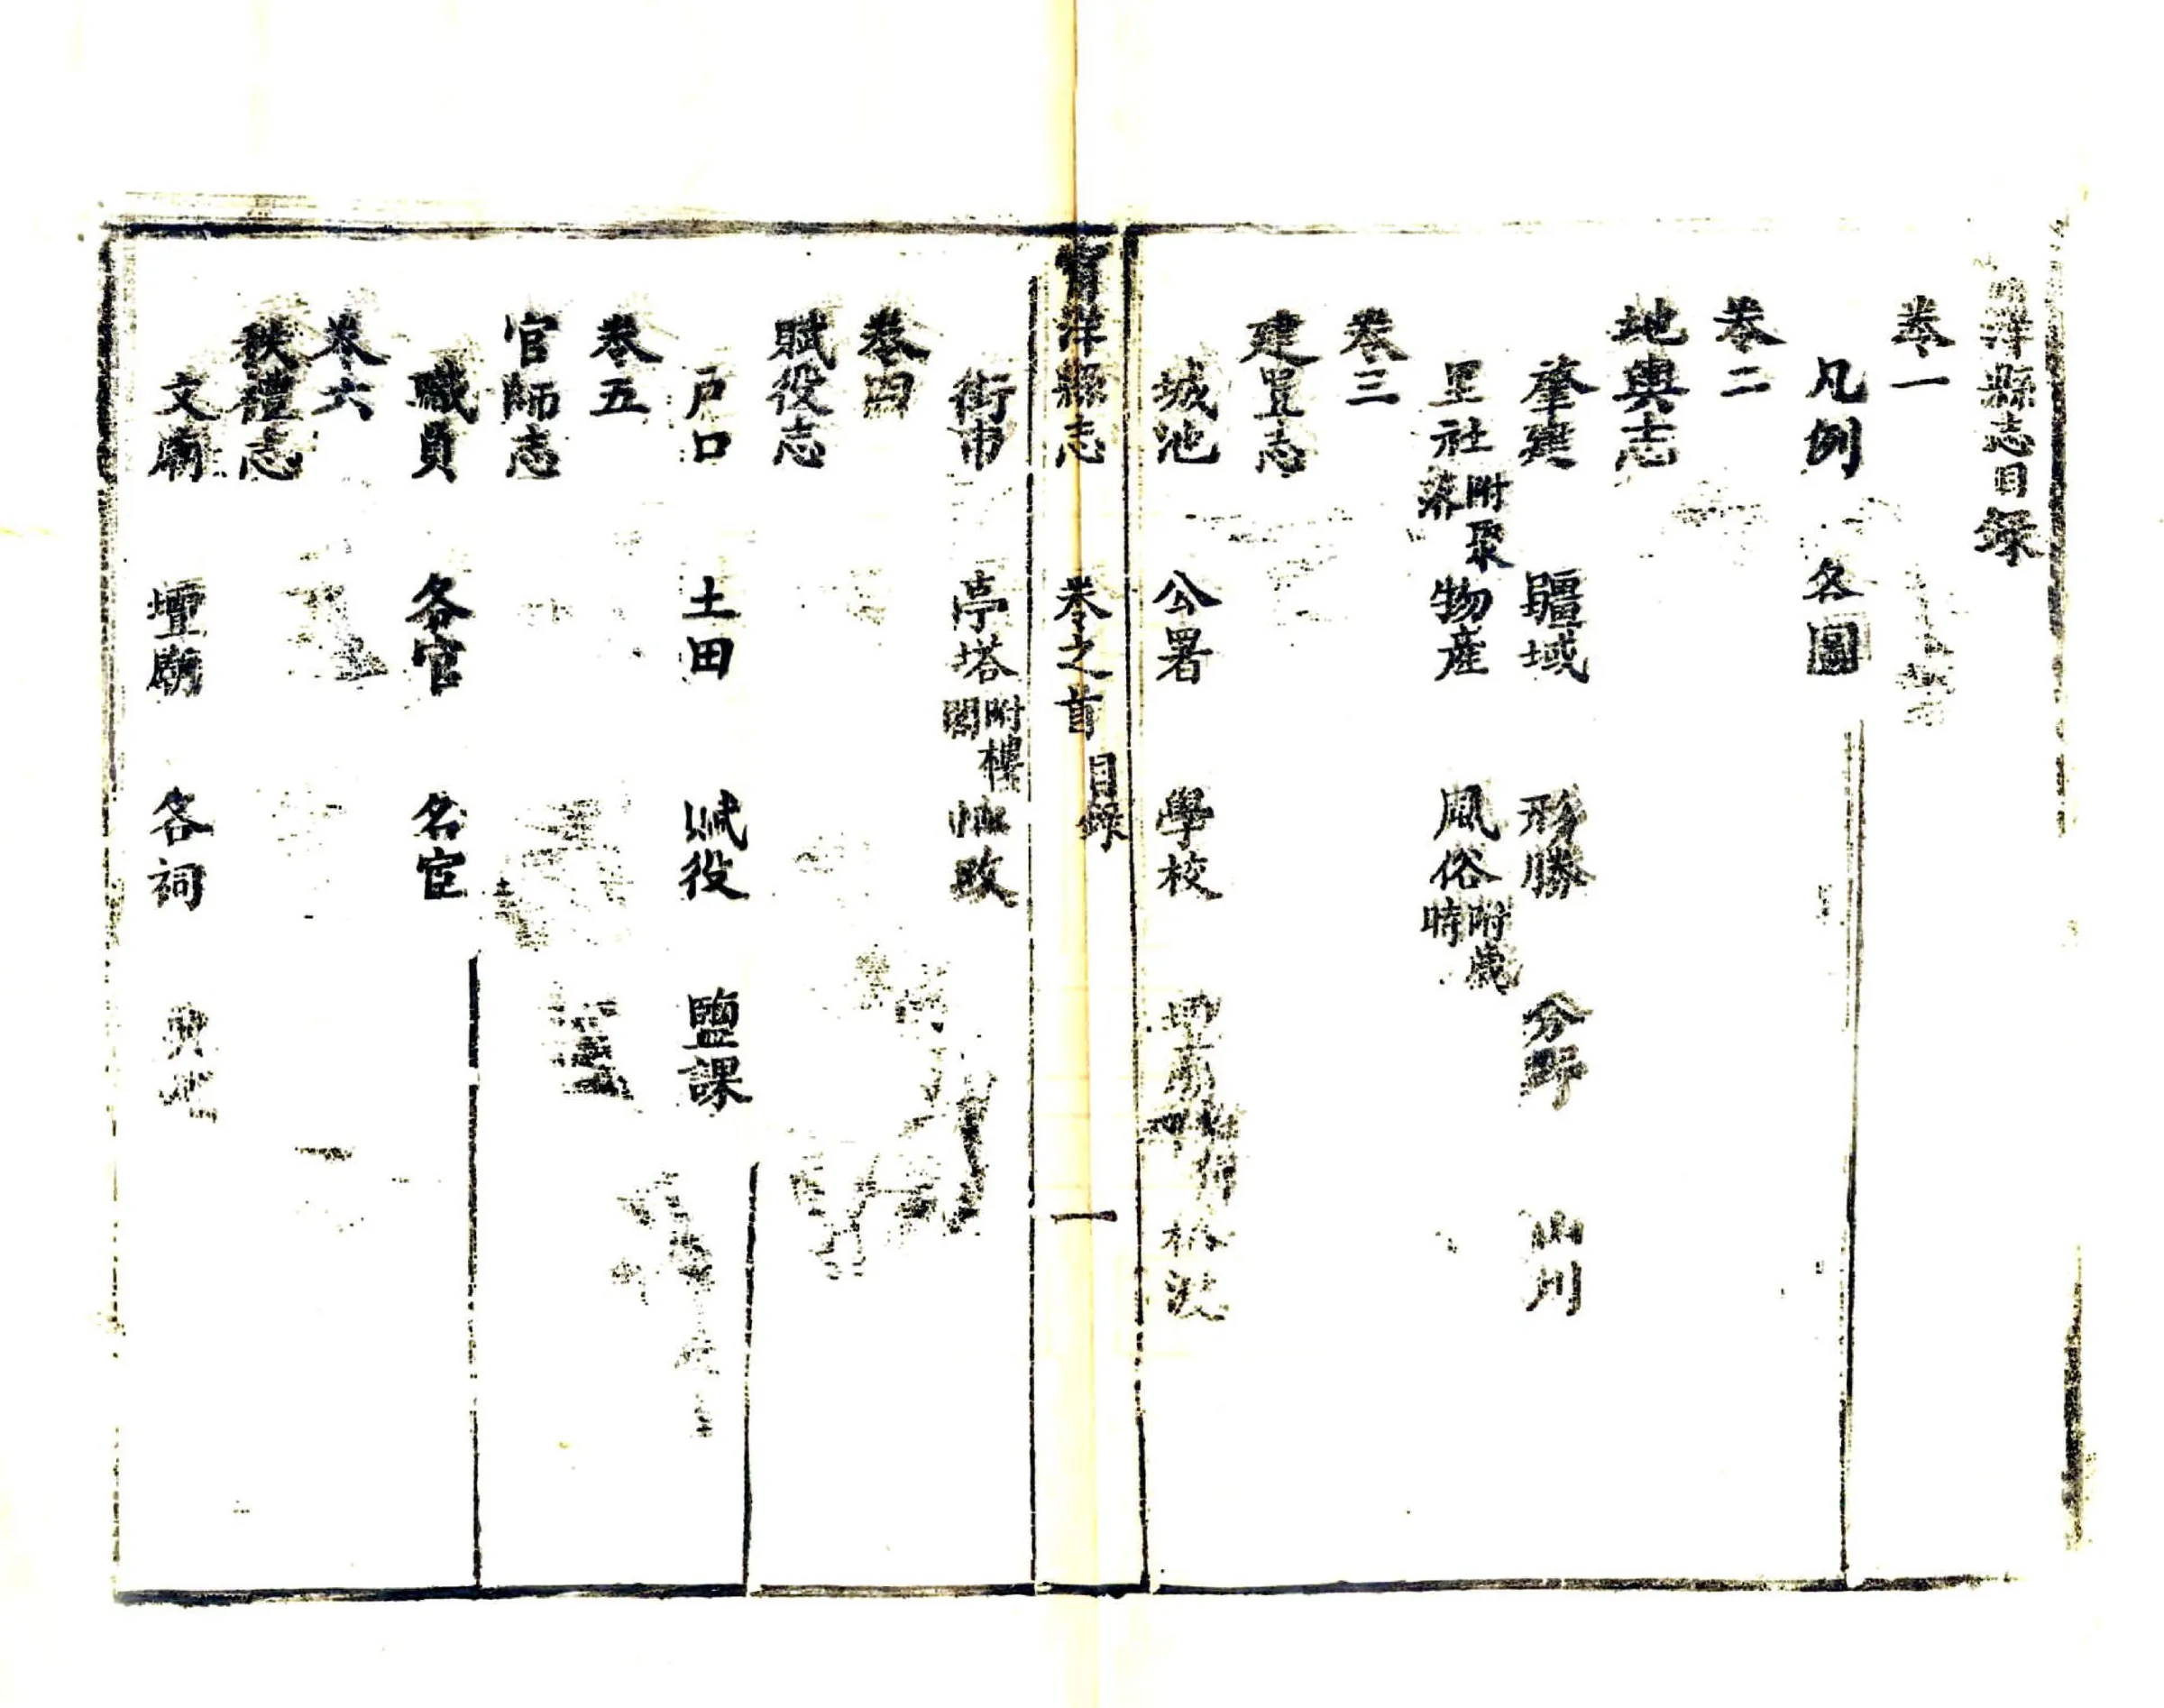 洋縣志目錄
卷一
凡例 各圖
卷二
地輿志
肇建 疆域 形勝 分野 山川
里社附聚落 物產 風俗附歲時
卷三
建置志
城池 公署 學校 橋梁
洋縣志 卷之首 目錄 一
街市 亭塔附樓閣 恤政
卷四
賦役志
戶口 土田 賦役 鹽課
卷五
官師志
職員 各官 名宦
卷六
秩禮志
文廟 壇廟 各祠